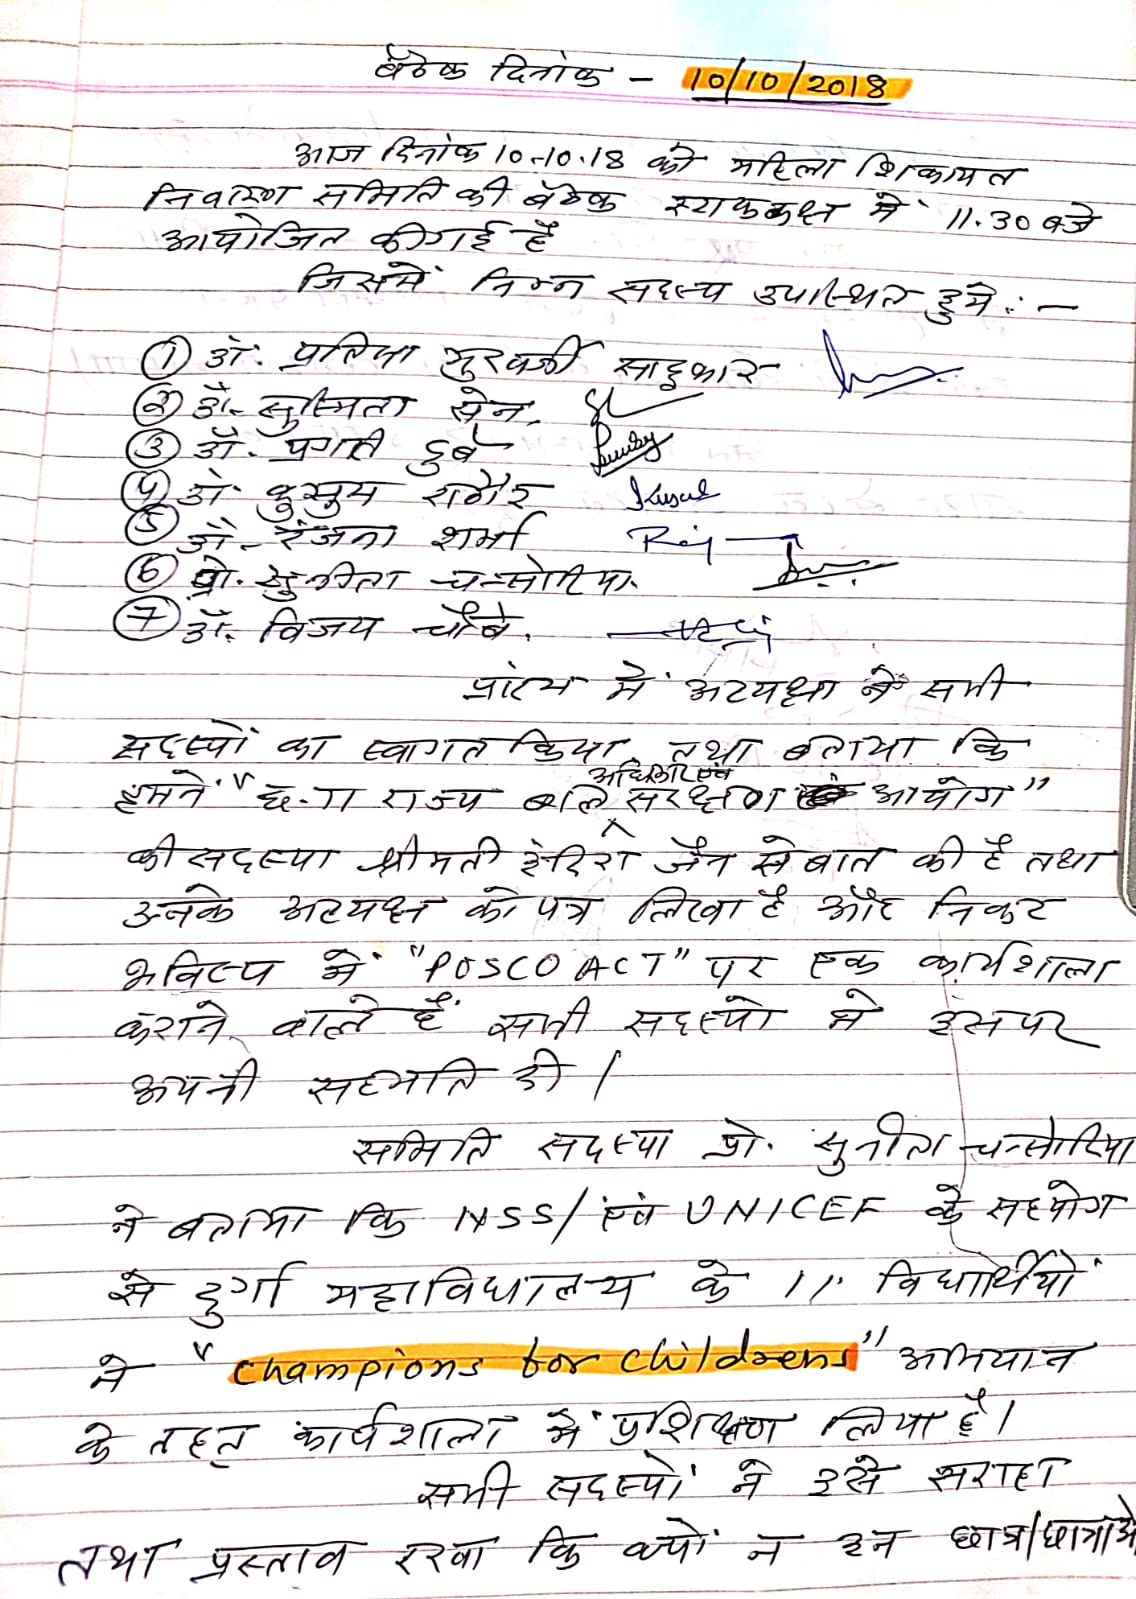 बैठक दिनांक - 10/10/2018
आज दिनांक 10.10.18 को महिला शिकायत
निवारण समिति की बैठक स्टाफकक्ष में 11.30 बजे
आयोजित की गई है
जिसमें निम्न सदस्य उपस्थित हुये :-
① डॉ. प्रतिभा मुखर्जी साहूकार
② डॉ. सुस्मिता सेन.
③ डॉ. प्रगति दुबे
④ डॉ. कुसुम राठौर Kusul
⑤ डॉ. रंजना शर्मा
⑥ प्रो. सुनीता चन्सोरिया.
⑦ डॉ. विजय चौबे.
प्रारंभ में अध्यक्षा ने सभी
सदस्यों का स्वागत किया तथा बताया कि
हमने "छ.ग राज्य बाल अधिकार एवं संरक्षण आयोग"
की सदस्या श्रीमती इंदिरा जैन से बात की है तथा
उनके अध्यक्ष को पत्र लिखा है और निकट
भविष्य में "POSCO ACT" पर एक कार्यशाला
कराने वाले हैं सभी सदस्यो ने इसपर
अपनी सहमति दी।
समिति सदस्या प्रो. सुनीता चन्सोरिया
ने बताया कि NSS/एवं UNICEF के सहयोग
से दुर्गा महाविद्यालय के 11 विद्यार्थीयों
ने "Champions for Childrens" अभियान
के तहत् कार्यशाला में प्रशिक्षण लिया है।
सभी सदस्यों ने इसे सराहा
तथा प्रस्ताव रखा कि क्यों न इन छात्र/छात्राओ